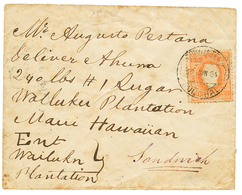 Mr Augusto Pestana
Deliver Ahuna
240 lbs # Sugar
Walluku Plantation
Maui Hawaiian
Ent
Wailuku
Plantation
Sandwich
FUNCHAL